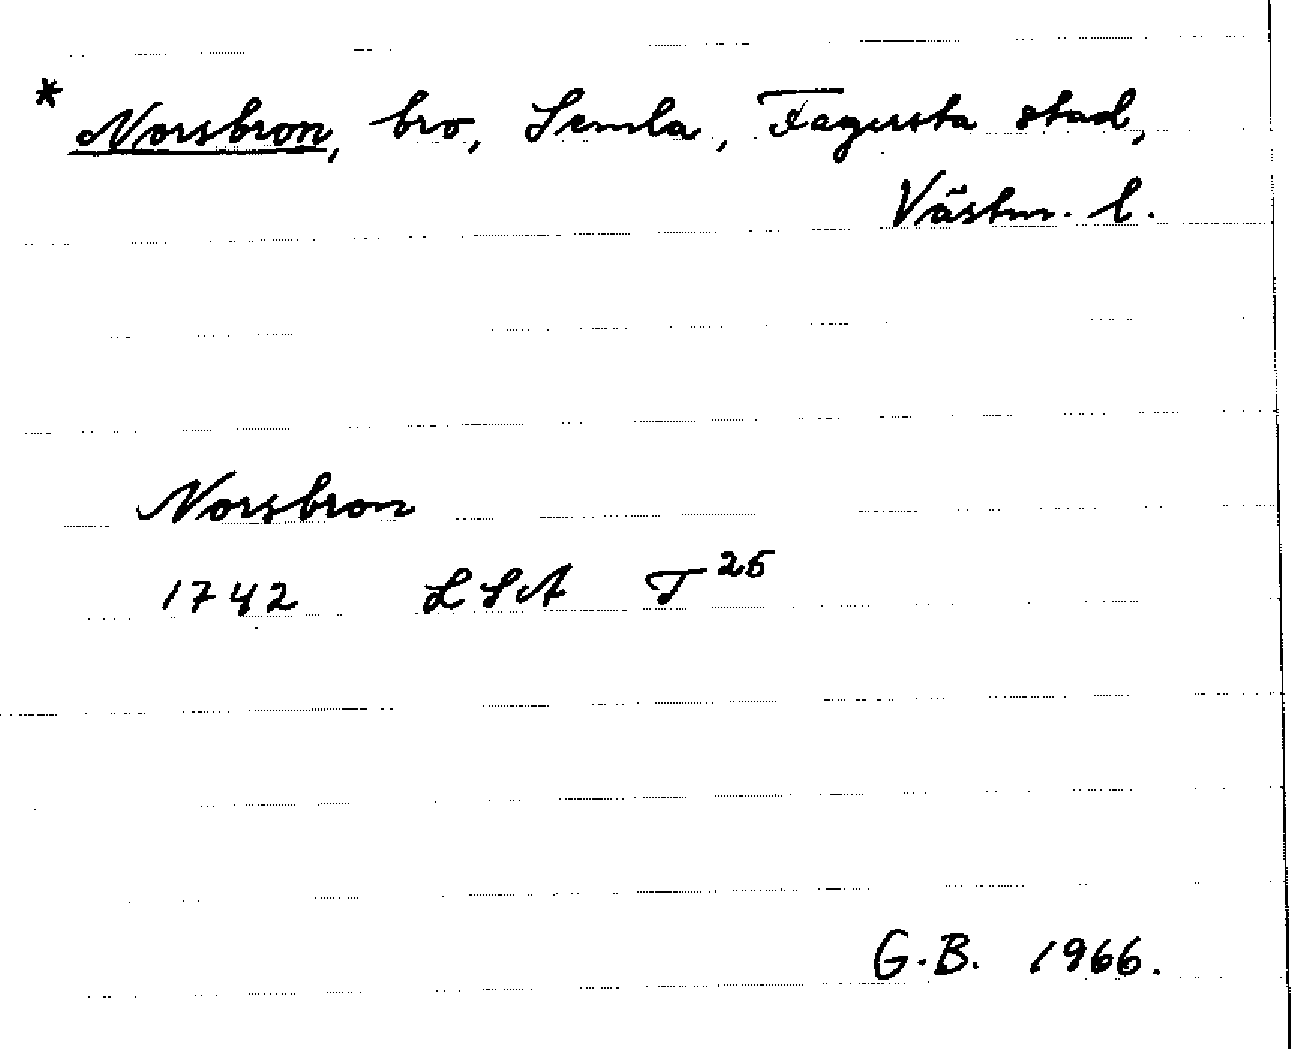 * Norsbron, bro, Semla, Fagersta stad,
Västm. l.
Norsbron
1742 LSA T 26
G.B. 1966.